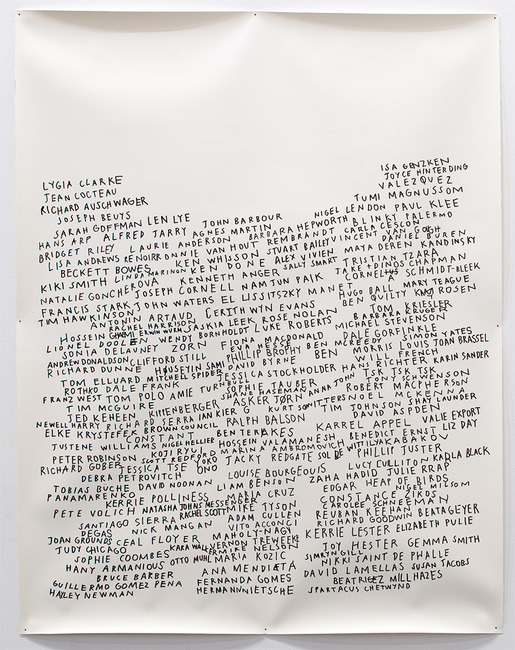 LYGIA CLARKE ISA GENZKEN
JEAN COCTEAU JOYCE HINTERDING
RICHARD AUSCHWAGER VALEZQUEZ
JOSEPH BEUYS TUMI MAGNUSSOM
SARAH GOFFMAN LEN LYE JOHN BARBOUR NIGEL LENDON PAUL KLEE
HANS ARP ALFRED JARRY AGNES MARTIN BARBARA HEPWORTH BLINKY PALERMO
BRIDGET RILEY LAURIE ANDERSON REMBRANDT CARLA CESCON
LISA ANDREWS RENOIR KEN WHISSON STUART BAILEY VINCENT VAN GOGH DANIEL BUREN
BECKETT BOWES KEN DONE ALEX VIVIEN MAYA DEREN KANDINSKY
KIKI SMITH LINDA MARINON KENNETH ANGER SALLY SMART TRISTIAN TZARA
NATALIE GONCHEROVA JOSEPH CORNELL NAM JUN PAIK JAKE + DINOS CHAPMAN
FRANCIS STARK JOHN WATERS EL LISSITSKY MANET CORNELIUS SCHMIDT-BLEEK
TIM HAWKINSON HUGO BALL MARY TEAGUE
ANTONIN ARTAUD CERITH WYN EVANS BEN QUILTY ROSEN
RACHEL HARRISON SASKIA LEEK ROSE NOLAN TOM KRIESLER
HOSSEIN ERWIN WURM WENDY BORNHOLDT LUKE ROBERTS BARBARA KRUGER
LIONEL DOOLEN FIONA MACDONALD MICHAEL STEVENSON
SONIA DELAUNEY ZORN EVA HESSE DALE GORFINKLE
ANDREW DONALDSON CLIFFORD STILL PHILLIP BROPHY BEN MCREEDY SIMON YATES
RICHARD DUNNE HOUSEYIN SAMI DAVID BYRNE BEN MORRIS LOUIS JOHN BRASSEL
TOM ELLUARD MITCHELL SPIDER JESSICA STOCKHOLDER WILL FRENCH
ROTHKO DALE FRANK HANS RICHTER KARIN SANDER
FRANZ WEST TOM POLO AMIE TURNBULL SOPHIE TAUBER TSK TSK TSK
TIM MCGUIRE TONY SCHWENSEN
TED KEHEEN KIPPENBERGER ASKER JORN ROBERT MACPHERSON
NEWELL HARRY RICHARD SERRA IAN KIER G KURT SCHWITTERS NOEL MCKENNA
ELKE KRYSTEFEK BROWN COUNCIL RALPH BALSON TIM JOHNSON SHAY LAUNDER
CONSTANT BEN TERAKES DAVID ASPDEN
JUSTENE WILLIAMS NIGEL HELLIER HOSSEIN VALAMANESH KARREL APPEL VALIE EXPORT
PETER ROBINSON KOJI RYUI MARINA ABROMOVICH BENEDICT ERNST LIZ DAY
RICHARD GOBER SCOTT REDFORD JACKY REDGATE SOL DE WITT ILYA KABAKOV
JESSICA TSE ONO PHILLIP JUSTER
DEBRA PETROVITCH LOUISE BOURGEOIS LUCY CULLITON KADLA BLACK
TOBIAS BUCHE DAVID NOONAN LIAM BENSON ZAHA HADID JULIE RRAP
PANAMARENKO EDGAR HEAP OF BIRDS
KERRIE POLLINESS MARIA CRUZ NIGEL MILSOM
PETE VOLICH NATASHA JOHNS MESSENGER CONSTANCE ZIKOS
RACHEL SCOTT MIKE TYSON CAROLEE SCHNEEMAN
SANTIAGO SIERRA ADAM CULLEN REUBAN KEEHAN BEATAGEYER
DEGAS NICK MANGAN VITO ACCONCI RICHARD GOODWIN
JOAN GROUNDS CEAL FLOYER MAHOLY-NAGY KERRIE LESTER ELIZABETH PULIE
JUDY CHICAGO KARA WALKER VERNON TREWEEKE
SOPHIE COOMBES MIKE NELSON JOY HESTER GEMMA SMITH
OTTO MUHL MARIA KOZIC SIMRYN GILL
HANY ARMANIOUS NIKKI SAINT DE PHALLE
BRUCE BARBER ANA MENDIETA DAVID LAMELLAS SUSAN JACOBS
GUILLERMO GOMEZ PENA FERNANDA GOMES BEATRIEZ MILLHAZES
HAILEY NEWMAN HERMAN NIETSCHE SPARTACUS CHETWYND